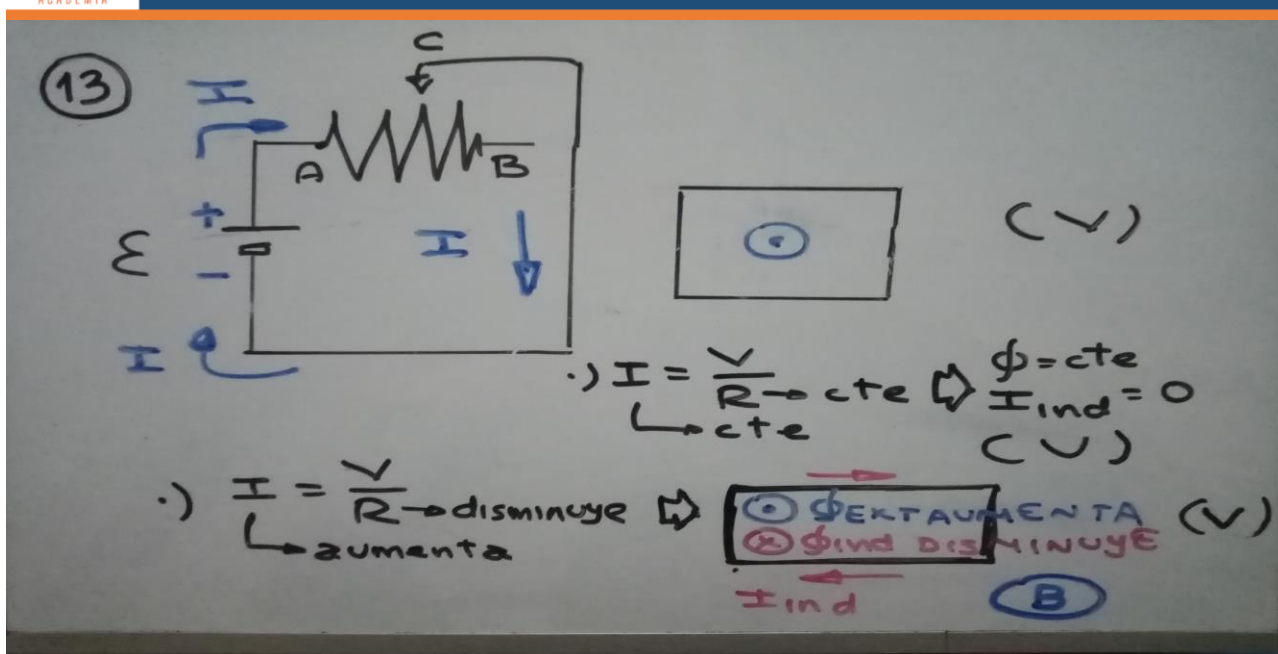 ACADEMIA
13
I
C
A
B
+
ε
-
I
I
(V)
.) I = V/R → cte ⇨ Φ = cte
↳ cte
I ind = 0
(V)
.) I = V/R → disminuye ⇨
↳ aumenta
⊙ ΦEXT AUMENTA (V)
⊗ Φind DISMINUYE
I ind
B